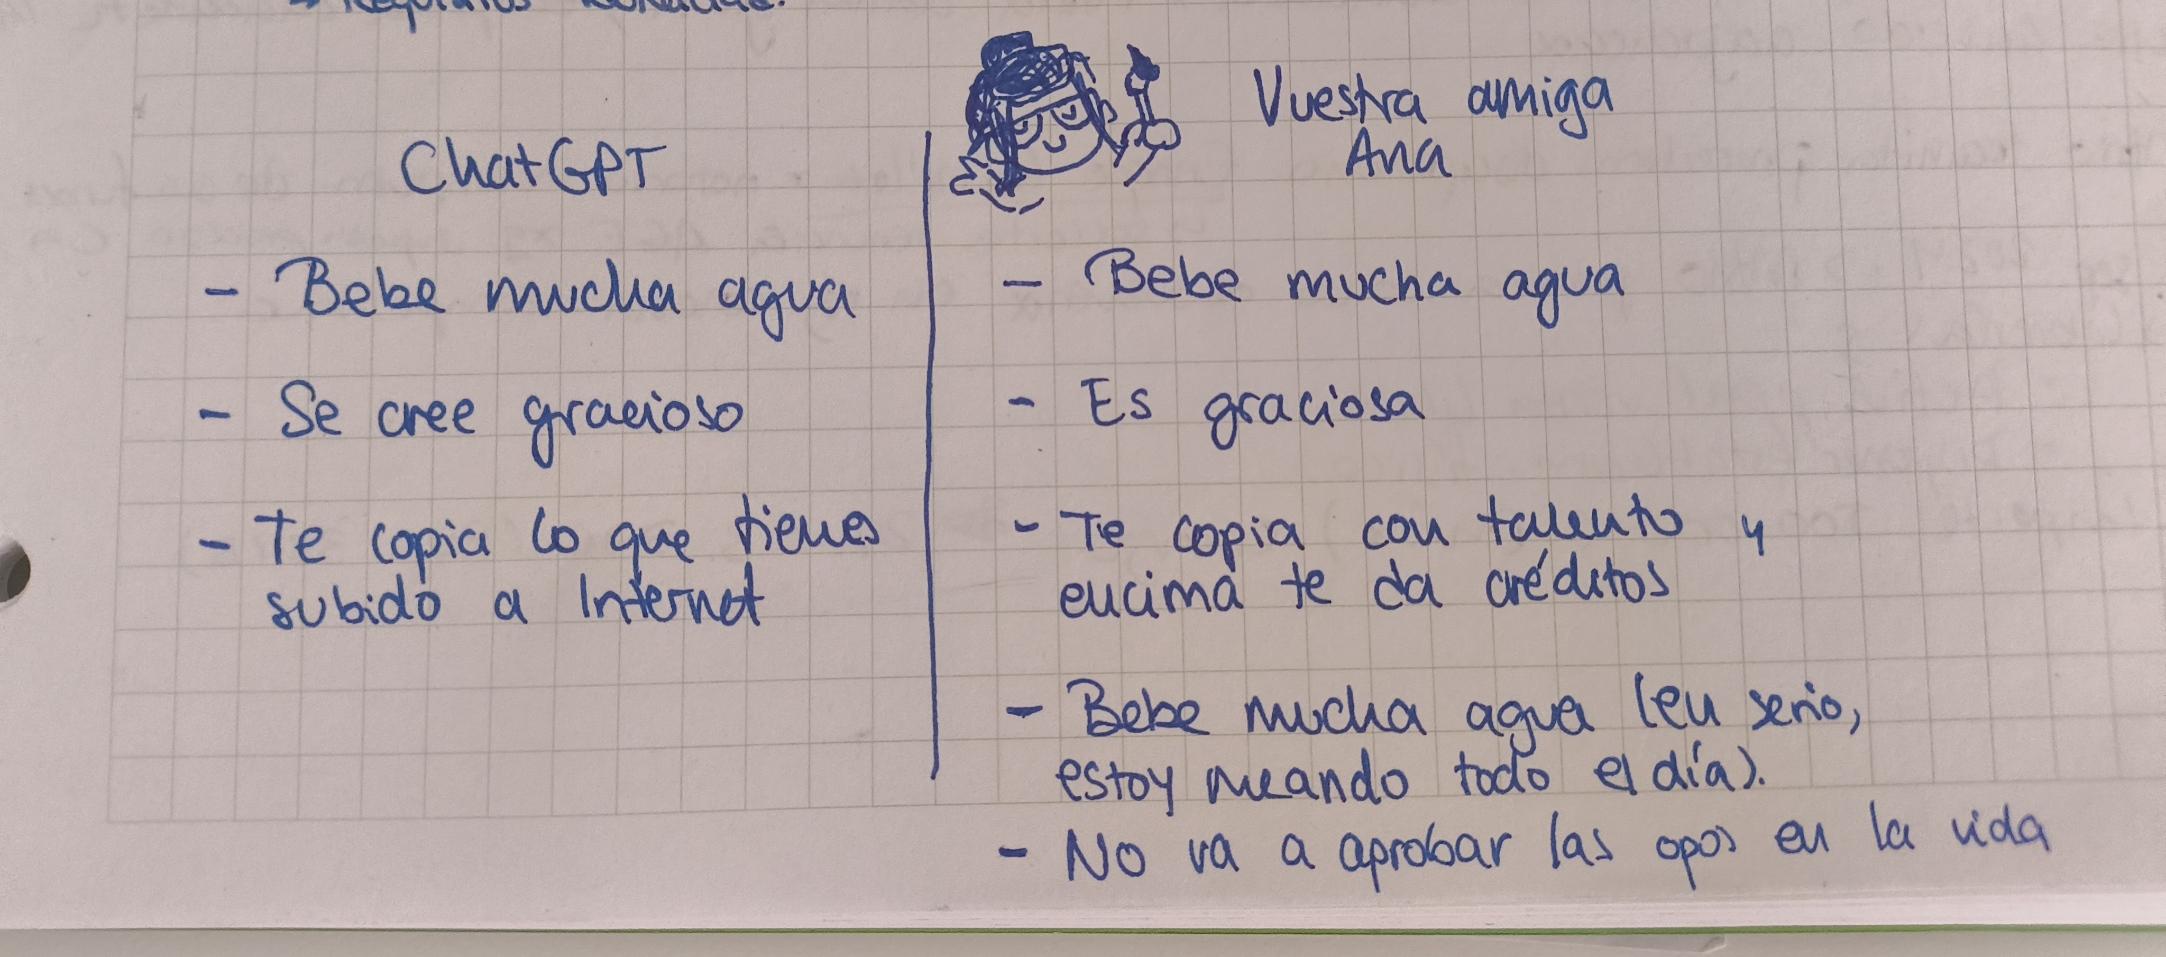 ChatGPT
- Bebe mucha agua
- Se cree gracioso
- Te copia lo que tienes
subido a Internet
Vuestra amiga
Ana
- Bebe mucha agua
- Es graciosa
- Te copia con talento y
encima te da créditos
- Bebe mucha agua (en serio,
estoy meando todo el día).
- No va a aprobar las opos en la vida